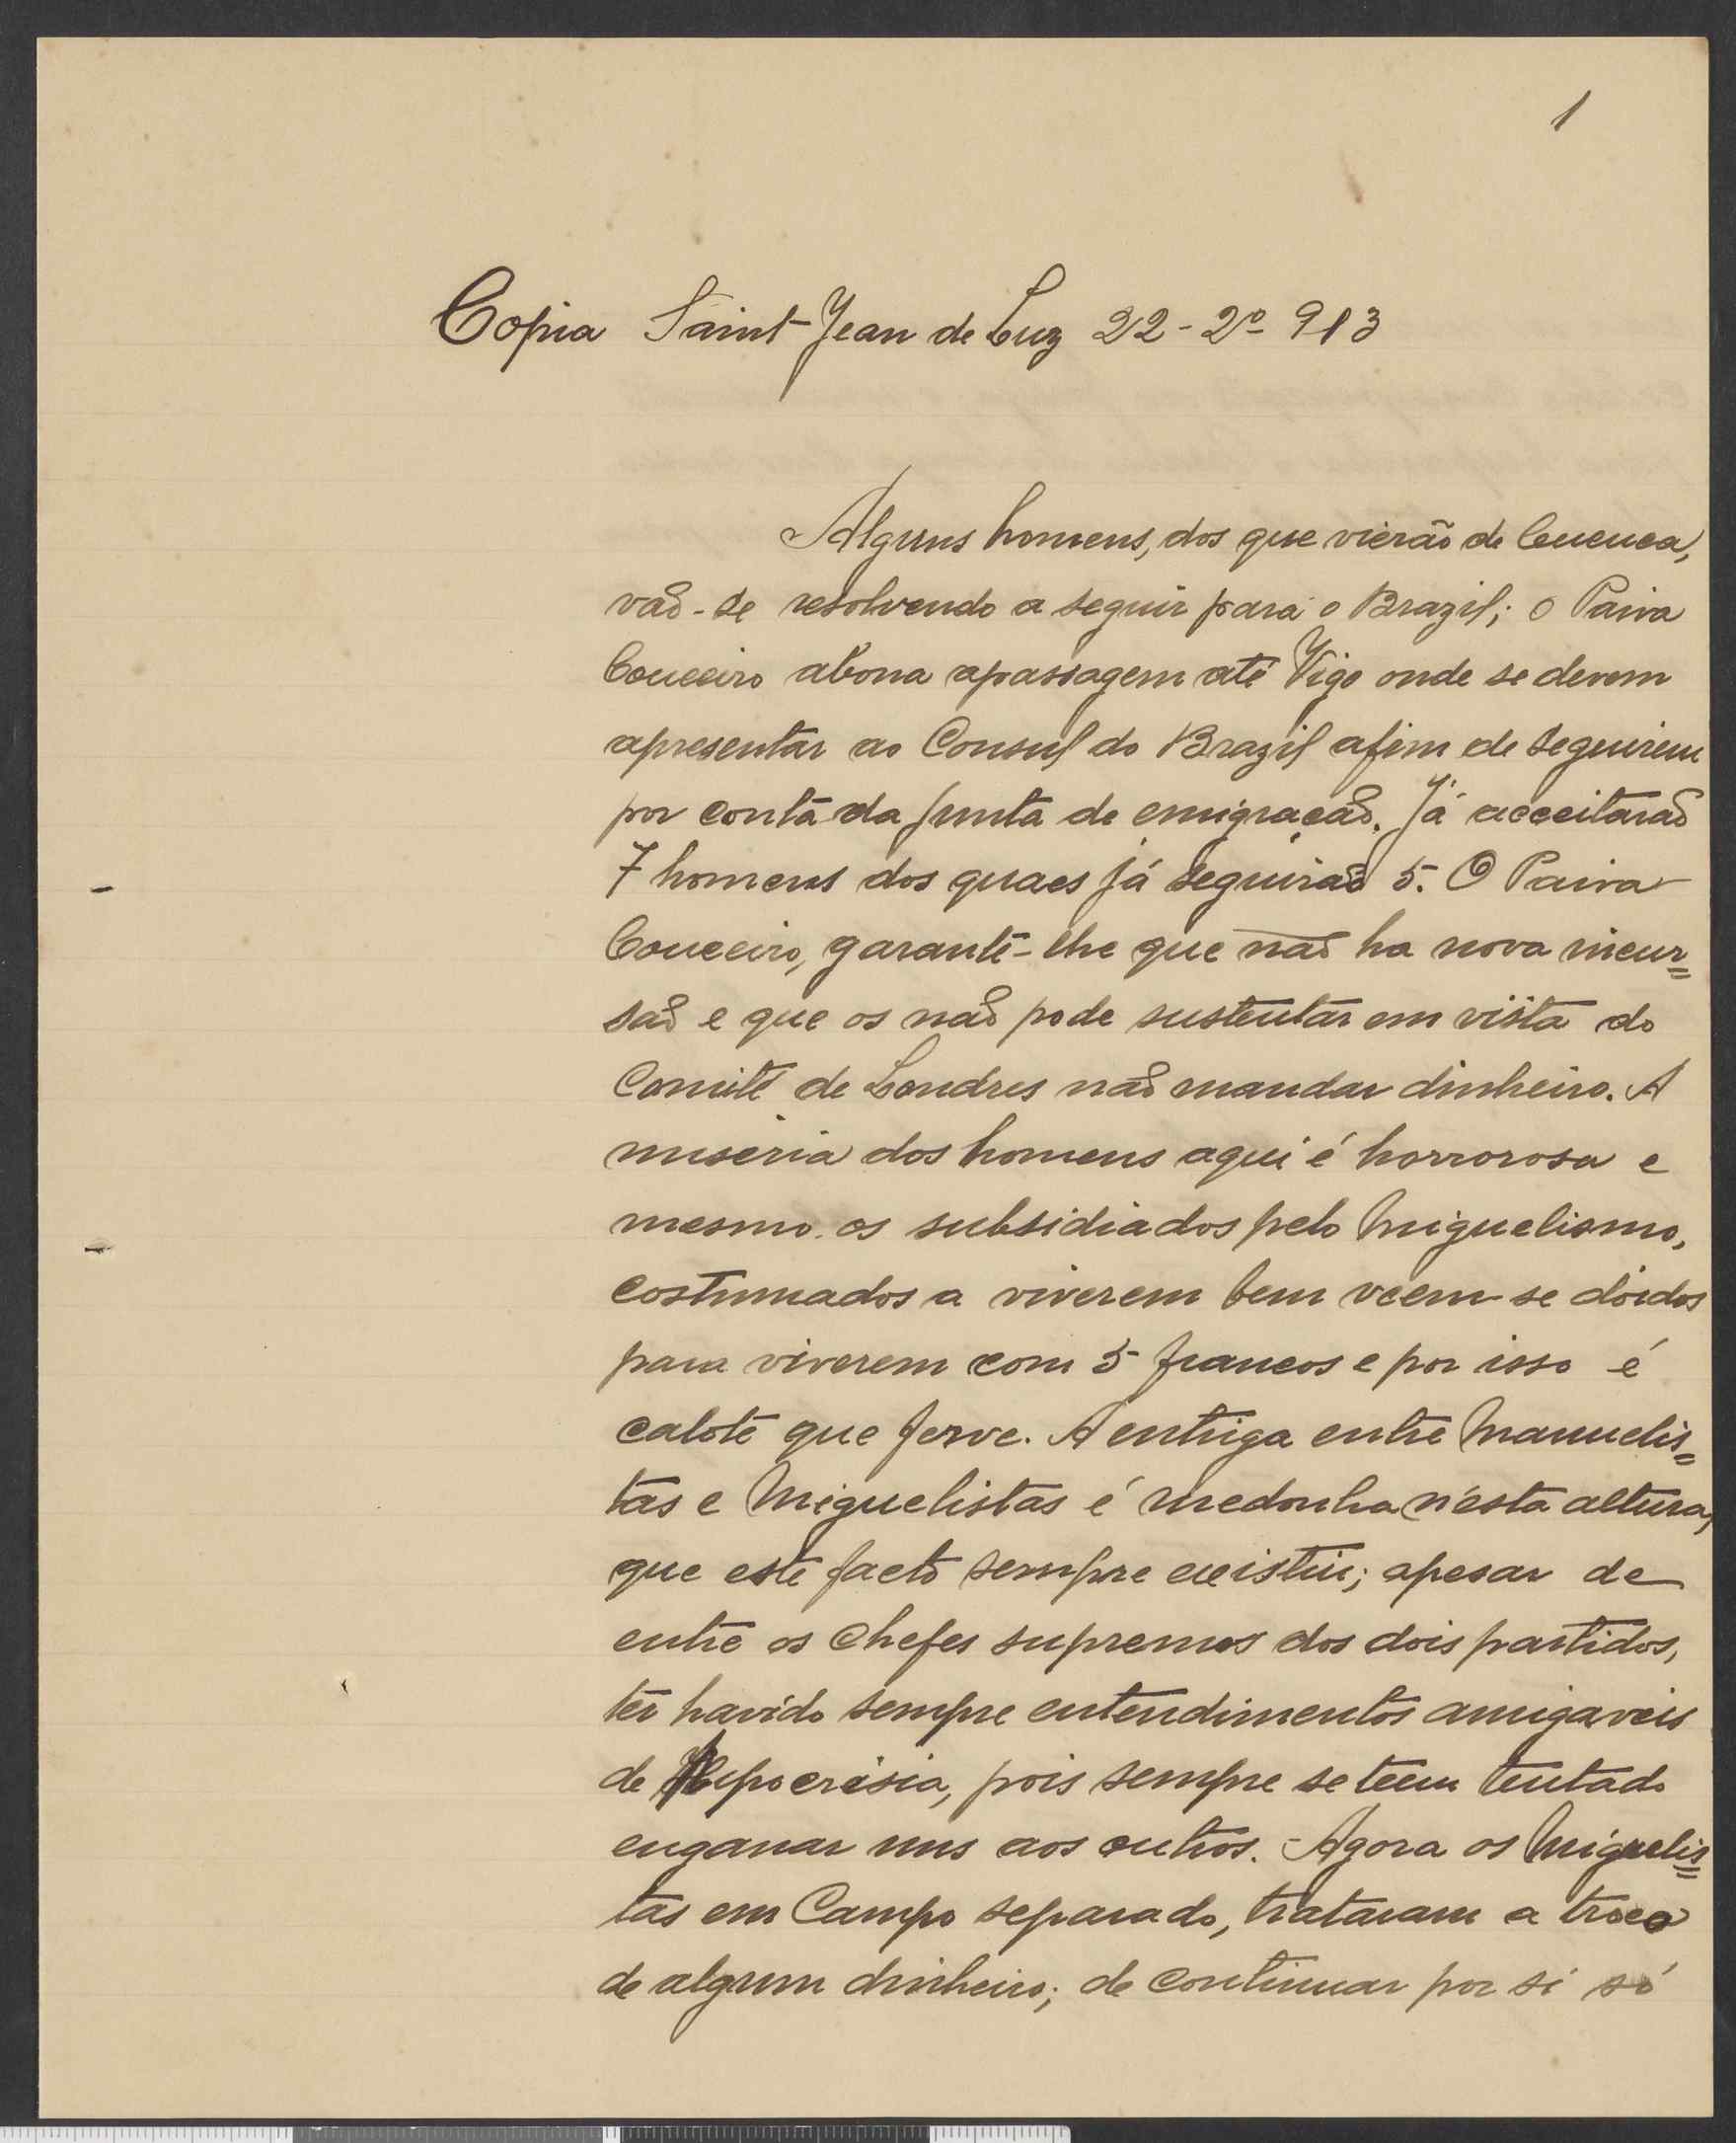 1
Copia Saint Jean de Luz 22-2º 913
Alguns homens, dos que vierão de Cuenca,
vaõ-se resolvendo a seguir para o Brazil; o Paiva
Couceiro abona apassagem até Vigo onde se devem
apresentar ao Consul do Brazil afim de seguirem
por conta da junta de emigracaõ. Já acceitaraõ
7 homens dos quaes já seguiraõ 5. O Paiva
Couceiro, garante-lhe que naõ ha nova incur=
saõ e que os naõ pode sustentar em vista do
Comité de Londres naõ mandar dinheiro. A
miseria dos homens aqui é horrorosa e
mesmo os subsidiados pelo Miguelismo,
costumados a viverem bem veem-se doidos
para viverem com 5 francos e por isso é
calote que ferve. A entriga entre Manuelis=
tas e Miguelistas é medonha n'esta altura,
que este facto sempre existiu; apesar de
entre os Chefes supremos dos dois partidos,
ter havido sempre entendimentos amigaveis
de Hipocrisia, pois sempre se teem tentado
enganar uns aos outros. Agora os Miguelis=
tas em Campo separado, trataram a troco
de algum dinheiro; de continuar por si só